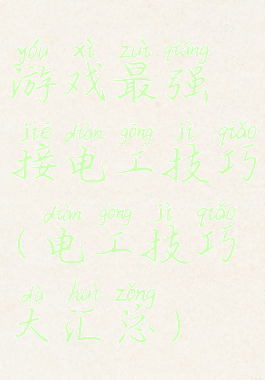 yóu xì zuì qiáng
游戏最强
jiē diàn gōng jì qiǎo
接电工技巧
diàn gōng jì qiǎo
(电工技巧
dà huì zǒng
大汇总)